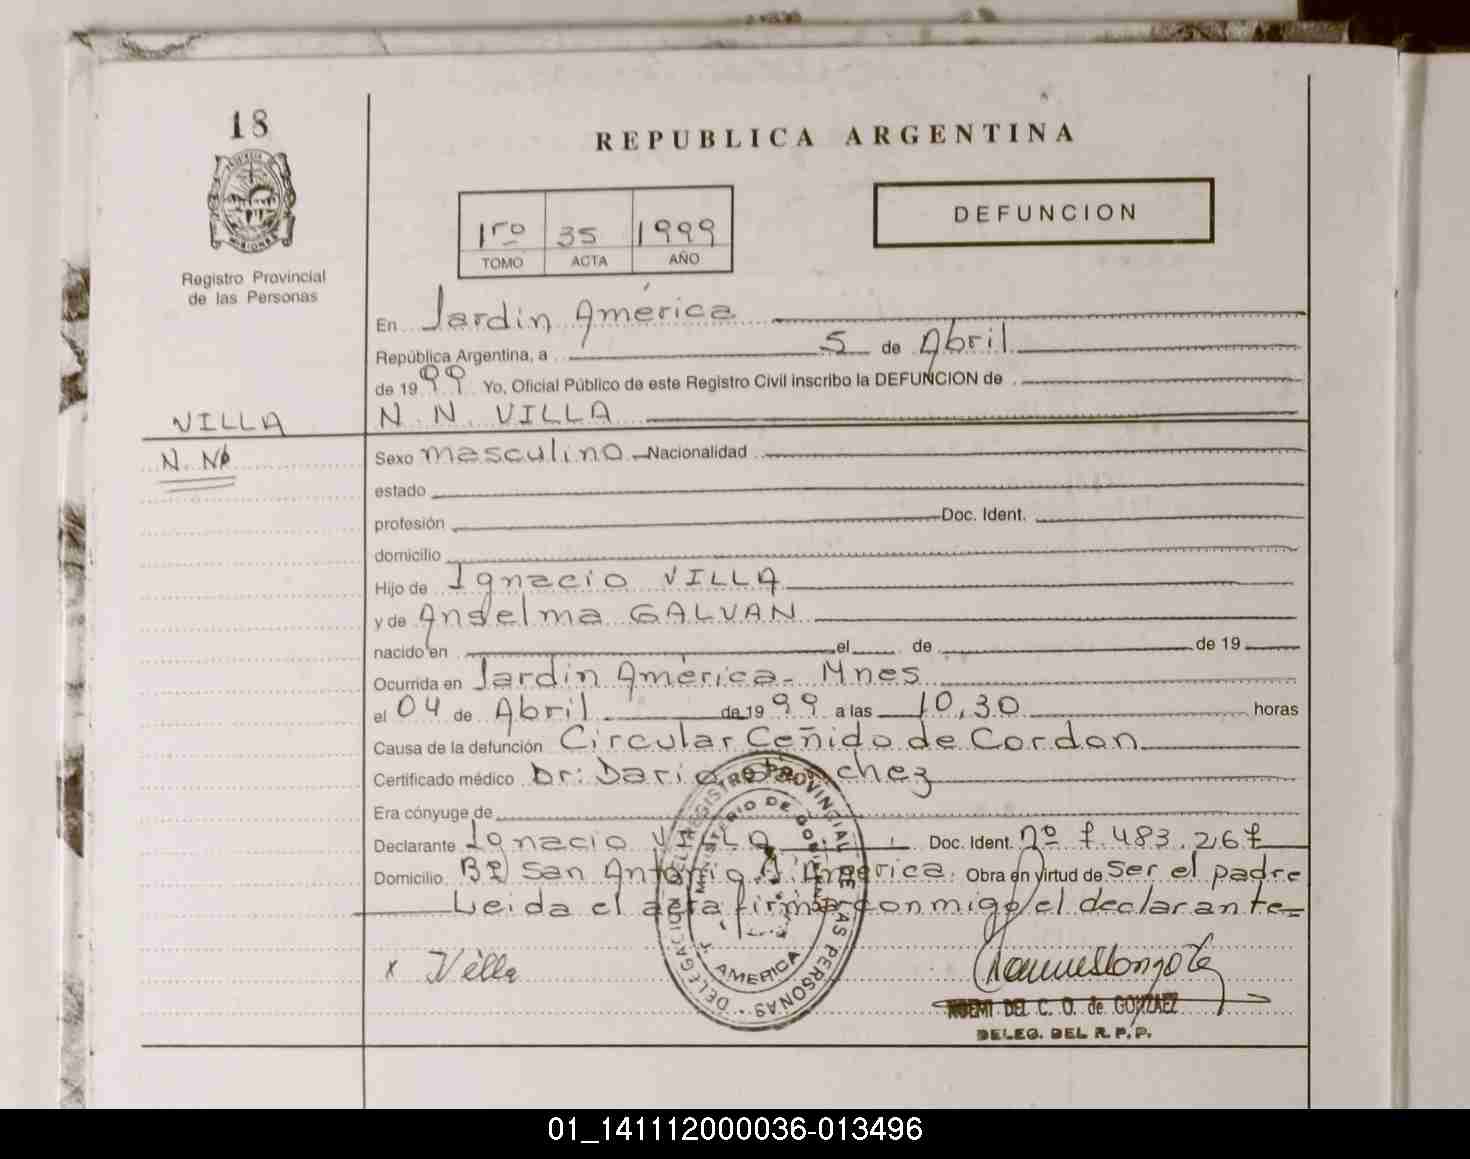 18
REPUBLICA ARGENTINA
1ro 35 1999
TOMO ACTA AÑO
DEFUNCION
MISIONES
Registro Provincial
de las Personas
En Jardin América
República Argentina, a 5 de Abril
de 1999 Yo, Oficial Público de este Registro Civil inscribo la DEFUNCION de
VILLA
N. N. VILLA
N. N.
Sexo masculino Nacionalidad
estado
profesión Doc. Ident.
domicilio
Hijo de Ignacio VILLA
y de Anselma GALVAN
nacido en el de de 19
Ocurrida en Jardin América- Mnes
el 04 de Abril de 1999 a las 10,30 horas
Causa de la defunción Circular Ceñido de Cordon
Certificado médico Dr: Dario chez
Era cónyuge de
Declarante Ignacio VILLA Doc. Ident. nº 7.483.267
Domicilio Bº San Antonio J. América. Obra en virtud de Ser el padre
Leida el acta firma conmigo el declarante=
x Villa
DELEGACION DEL REGISTRO PROVINCIAL DE LAS PERSONAS
MINISTERIO DE GOBIERNO
J. AMERICA
NOEMI DEL C. O. de GONZALEZ
DELEG. DEL R. P. P.
01_141112000036-013496